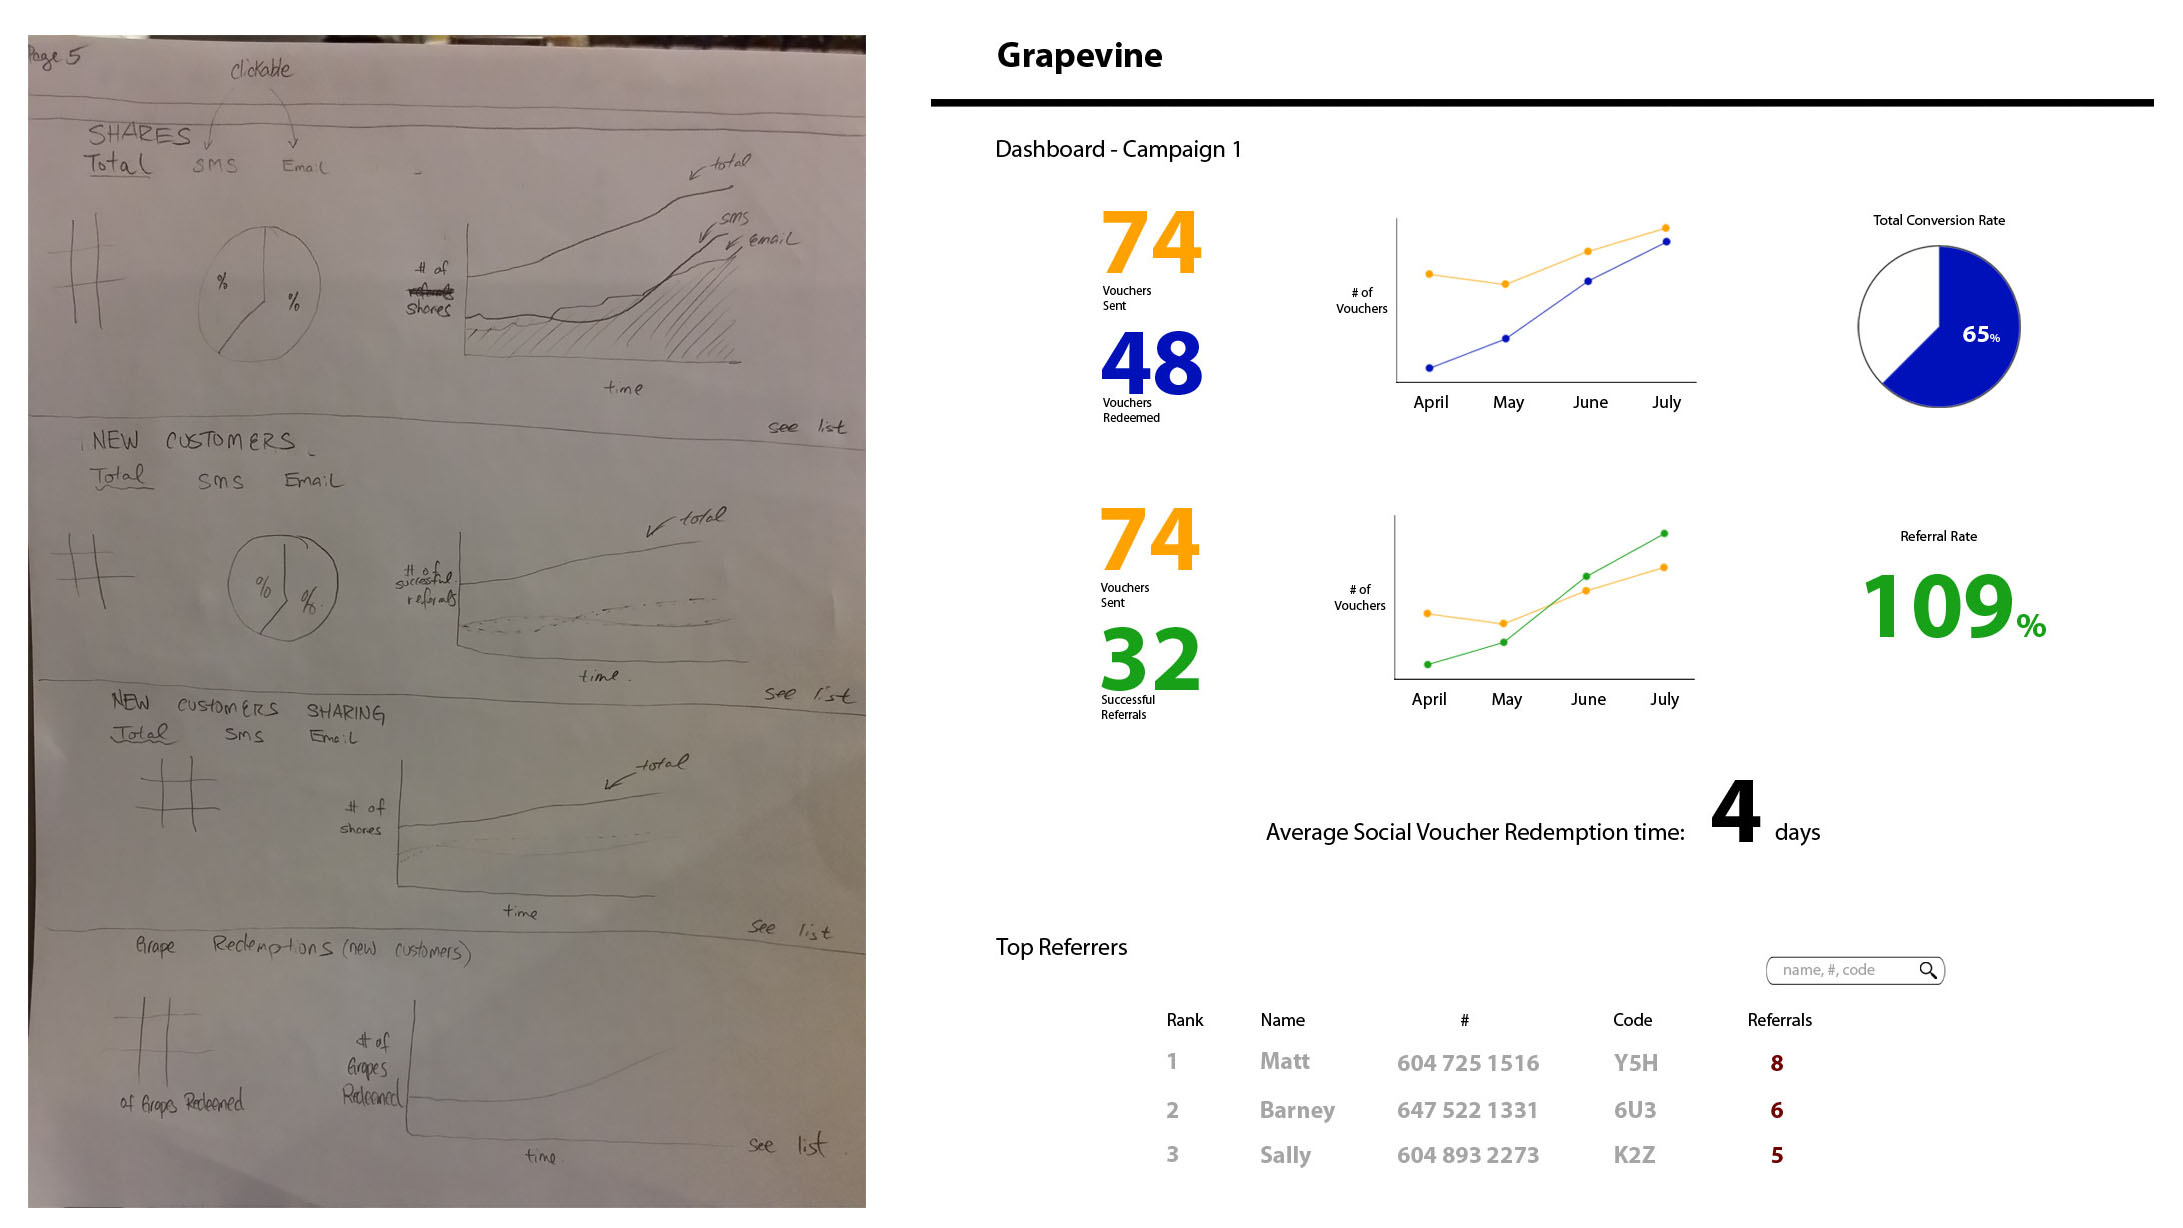 Page 5
clickable
SHARES
Total SMS Email
total
SMS
Email
% %
# of
shares
time
see list
NEW CUSTOMERS
Total SMS Email
total
% %
# of
successful
referrals
time.
see list
NEW CUSTOMERS SHARING
Total SMS Email
total
# of
shares
time
see list
Grape Redemptions (new customers)
# of
Grapes
Redeemed
of Grapes Redeemed
time.
see list
Grapevine
Dashboard - Campaign 1
74
Vouchers
Sent
48
Vouchers
Redeemed
# of
Vouchers
April May June July
Total Conversion Rate
65%
74
Vouchers
Sent
32
Successful
Referrals
# of
Vouchers
April May June July
Referral Rate
109%
Average Social Voucher Redemption time: 4 days
Top Referrers
name, #, code
Rank Name # Code Referrals
1 Matt 604 725 1516 Y5H 8
2 Barney 647 522 1331 6U3 6
3 Sally 604 893 2273 K2Z 5